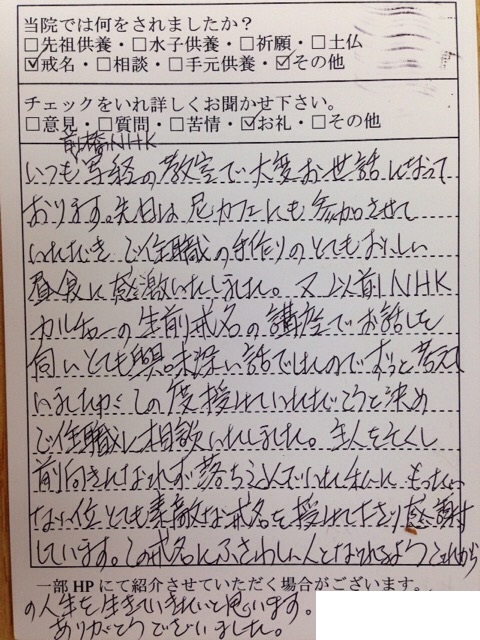 当院では何をされましたか？
□先祖供養・□水子供養・□祈願・□土仏
☑戒名・□相談・□手元供養・☑その他
チェックをいれ詳しくお聞かせ下さい。
□意見・□質問・□苦情・☑お礼・□その他
前橋NHK
いつも写経の教室で大変お世話になって
おります。先日は尼カフェにも参加させて
いただき、ご住職の手作りのとてもおいしい
昼食に感激いたしました。又以前NHK
カルチャーの生前戒名の講座でお話しを
伺いとても興味深い話でしたのでずっと考えて
いましたがこの度授けていただこうと決め
ご住職に相談いたしました。主人を亡くし
前向きになれず落ち込んでいた私に、もったい
ない位とても素敵な戒名を授けて下さり感謝
しています。この戒名にふさわしい人となれるようこれから
一部HPにて紹介させていただく場合がございます。
の人生を生きていきたいと思います。
ありがとうございました。